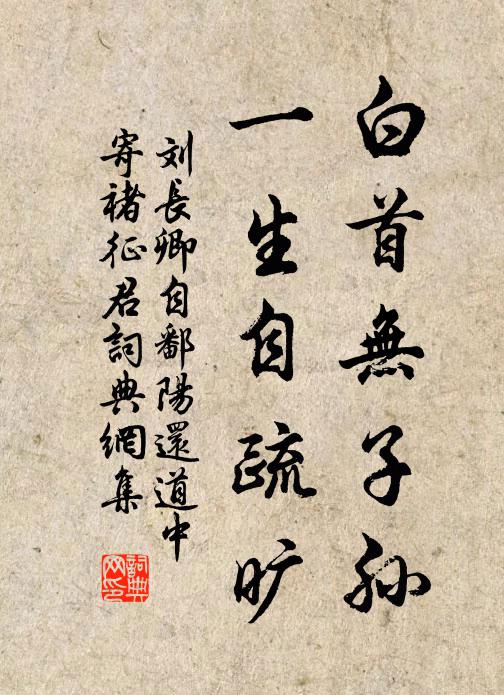 白首無子孫
一生自疏旷
刘長卿自鄱陽還道中
寄褚征君詞典網集
詞典
网印